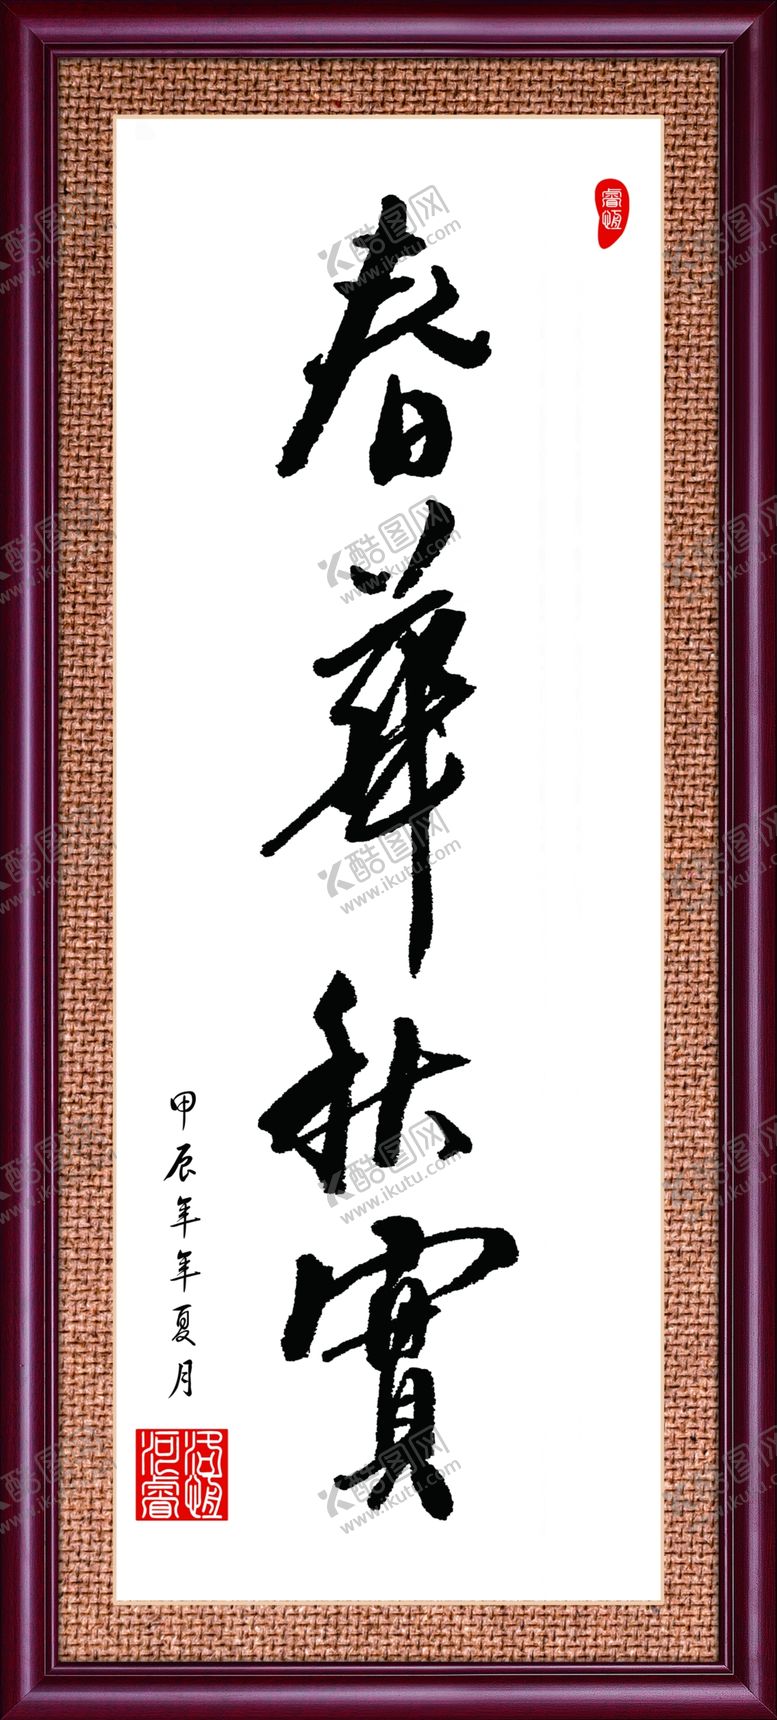 春華秋實
甲辰年年夏月
睿恆
洛恆
河睿
酷图网
www.ikutu.com